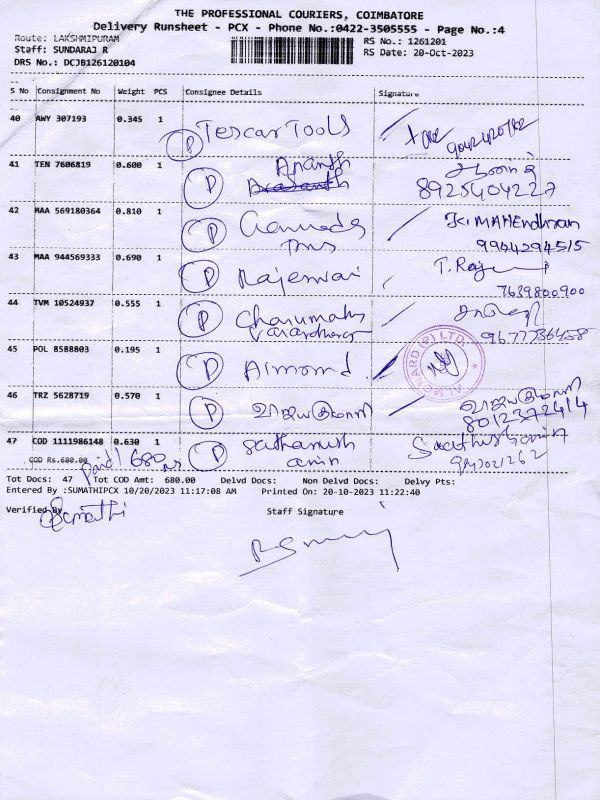 THE PROFESSIONAL COURIERS, COIMBATORE
Delivery Runsheet - PCX - Phone No.:0422-3505555 - Page No.:4
Route: LAKSHMIPURAM
RS No.: 1261201
Staff: SUNDARAJ R
RS Date: 20-Oct-2023
DRS No.: DCJB126120104
S No Consignment No Weight PCS Consignee Details Signature
40 AWY 307193 0.345 1 P Tescar Tools
41 TEN 7606819 0.600 1 P Ananth
8925404227
42 MAA 569180364 0.810 1 P K. MAHENdhran
9944294515
43 MAA 944569333 0.690 1 P Rajeswari T. Raj
7639800900
44 TVM 10524937 0.555 1 P Charumathy
9677736458
45 POL 8588803 0.195 1 P Almond
46 TRZ 5628719 0.570 1 P
8012372414
47 COD 1111986148 0.630 1 P
COD Rs.680.00 paid 680
Tot Docs: 47 Tot COD Amt: 680.00 Delvd Docs: Non Delvd Docs: Delvy Pts:
Entered By :SUMATHIPCX 10/20/2023 11:17:08 AM Printed On: 20-10-2023 11:22:40
Verified By Staff Signature
Sumathi